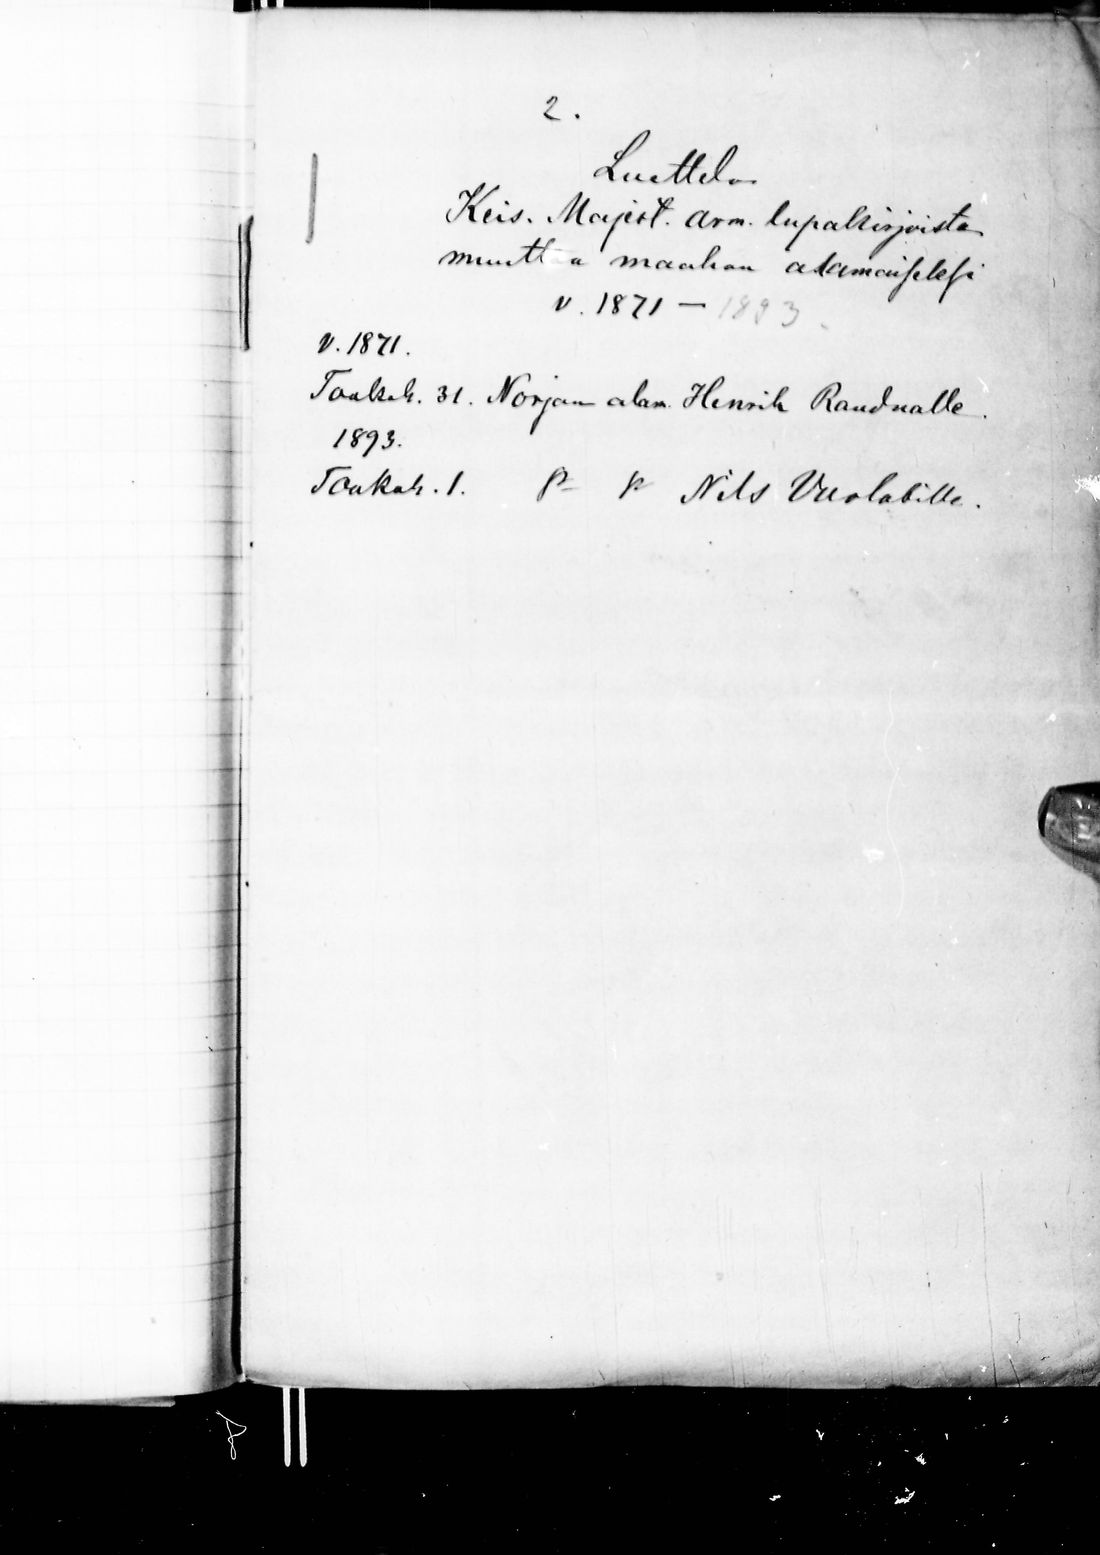 2.
Luettelo
Keis. Majest. arm. lupakirjoista
muuttaa maahan alamaiseksi
v. 1871 — 1893.
v. 1871.
Toukok. 31. Norjan alam. Henrik Raudnalle.
1893.
Toukok. 1. Nils Vuolabille.